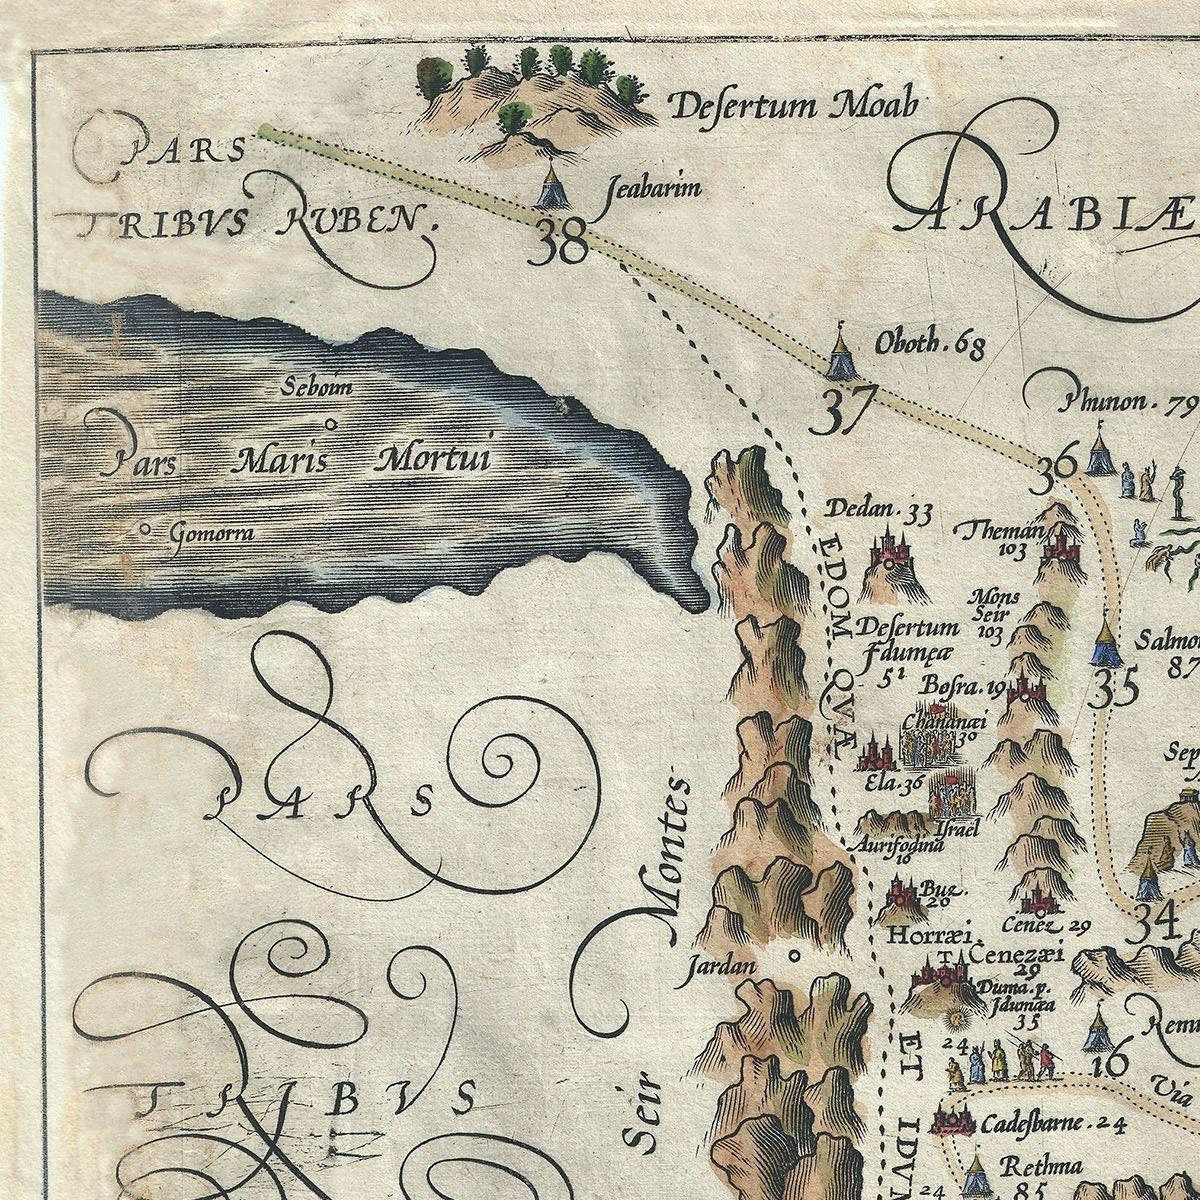 Deſertum Moab
PARS
TRIBVS RVBEN.
Jeabarim
38
ARABIÆ
Oboth. 68
37
Phunon. 79
36
Seboim
Pars Maris Mortui
Gomorra
Dedan. 33
Theman
103
EDOM QVÆ
Mons
Seir
103
Deſertum
Jdumęæ
51
Salmo
87
35
Boſra. 19
Chananæi
30
Ela. 36
Iſrael
Aurifodina
16
Sep
PARS
Montes
Seir
Buz.
20
Cenez 29
34
Horræi.
Jardan
Cenezæi
29
Duma. p.
Jdumæa
35
24
16
Via
ET IDVM
TRIBVS
Cadeſbarne. 24
Rethma
85
24